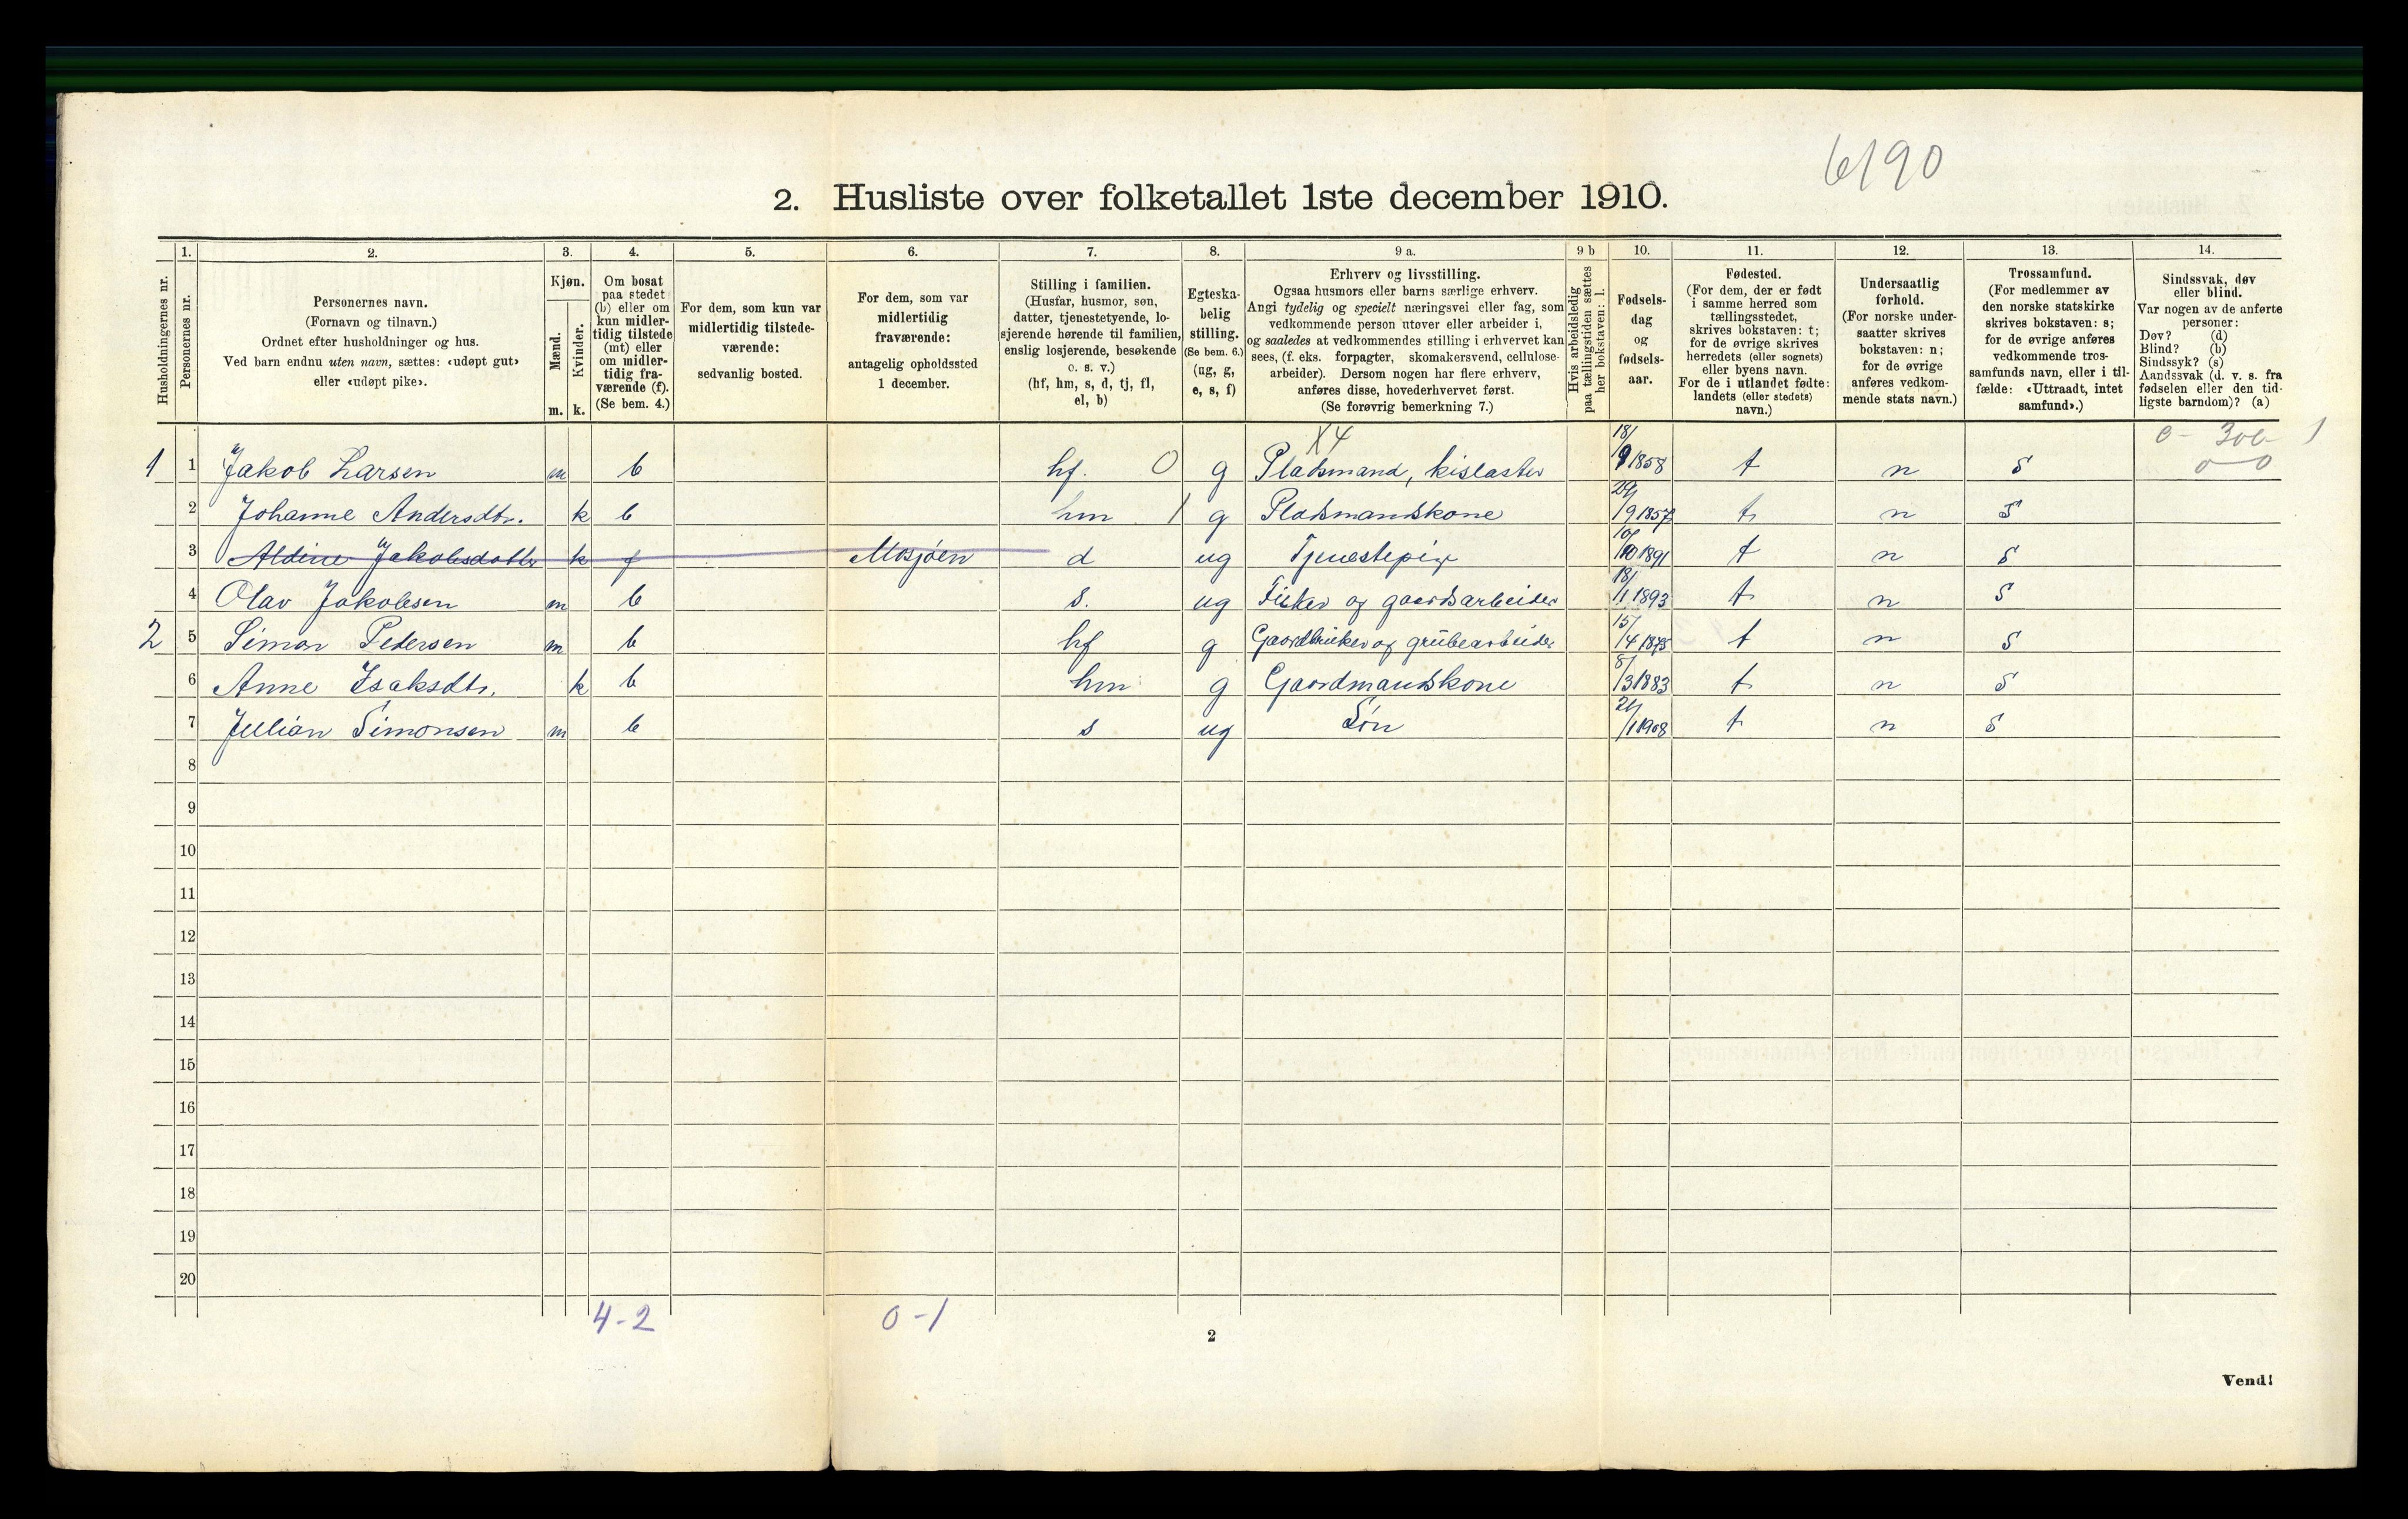 6190
2. Husliste over folketallet 1ste december 1910.
1. 2. 3. 4. 5. 6. 7. 8. 9 a. 9 b 10. 11. 12. 13. 14.
Husholdningernes nr.
Personernes nr.
Personernes navn.
(Fornavn og tilnavn.)
Ordnet efter husholdninger og hus.
Ved barn endnu uten navn, sættes: «udøpt gut»
eller «udøpt pike».
Kjøn.
Mænd.
Kvinder.
m. k.
Om bosat
paa stedet
(b) eller om
kun midler-
tidig tilstede
(mt) eller
om midler-
tidig fra-
værende (f).
(Se bem. 4.)
For dem, som kun var
midlertidig tilstede-
værende:
sedvanlig bosted.
For dem, som var
midlertidig
fraværende:
antagelig opholdssted
1 december.
Stilling i familien.
(Husfar, husmor, søn,
datter, tjenestetyende, lo-
sjerende hørende til familien,
enslig losjerende, besøkende
o. s. v.)
(hf, hm, s, d, tj, fl,
el, b)
Egteska-
belig
stilling.
(Se bem. 6.)
(ug, g,
e, s, f)
Erhverv og livsstilling.
Ogsaa husmors eller barns særlige erhverv.
Angi tydelig og specielt næringsvei eller fag, som
vedkommende person utøver eller arbeider i,
og saaledes at vedkommendes stilling i erhvervet kan
sees, (f. eks. forpagter, skomakersvend, cellulose-
arbeider). Dersom nogen har flere erhverv,
anføres disse, hovederhvervet først.
(Se forøvrig bemerkning 7.)
Hvis arbeidsledig
paa tællingstiden sættes
her bokstaven: l.
Fødsels-
dag
og
fødsels-
aar.
Fødested.
(For dem, der er født
i samme herred som
tællingsstedet,
skrives bokstaven: t;
for de øvrige skrives
herredets (eller sognets)
eller byens navn.
For de i utlandet fødte:
landets (eller stedets)
navn.)
Undersaatlig
forhold.
(For norske under-
saatter skrives
bokstaven: n;
for de øvrige
anføres vedkom-
mende stats navn.)
Trossamfund.
(For medlemmer av
den norske statskirke
skrives bokstaven: s;
for de øvrige anføres
vedkommende tros-
samfunds navn, eller i til-
fælde: «Uttraadt, intet
samfund».)
Sindssvak, døv
eller blind.
Var nogen av de anførte
personer:
Døv? (d)
Blind? (b)
Sindssyk? (s)
Aandssvak (d. v. s. fra
fødselen eller den tid-
ligste barndom)? (a)
X4
1 1 Jakob Larsen m b hf. 0 g Pladsmand, kislaster 18/9 1858 t n s
2 Johanne Andersdtr. k b hm 1 g Pladsmandskone 29/9 1857 t n s
3 Aldine Jakobsdatter k f Mosjøen d ug Tjenestepige 10/10 1891 t n s
4 Olav Jakobsen m b s. ug Fisker og gaardsarbeider 18/1 1893 t n s
2 5 Simon Pedersen m b hf g Gaardbruker og grubearbeider 15/4 1875 t n s
6 Anne Isaksdtr. k b hm g Gaardmandskone 8/3 1883 t n s
7 Julian Simonsen m b s ug Søn 24/1 1908 t n s
8
9
10
11
12
13
14
15
16
17
18
19
20
4-2 0-1
2
Vend!